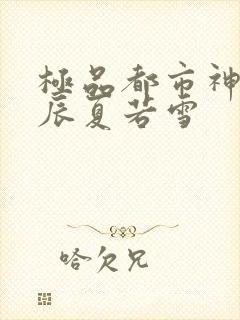 極品都市神
辰夏若雪
哈欠兄